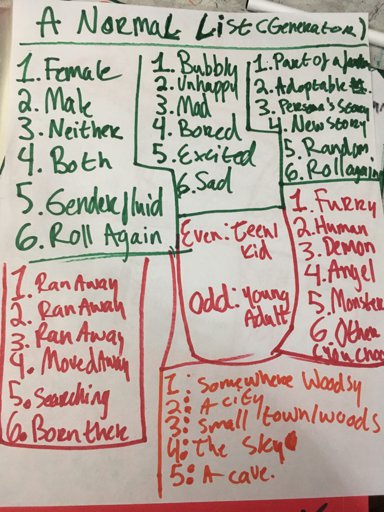 A Normal List (Generator)
1. Female
2. Male
3. Neither
4. Both
5. Genderfluid
6. Roll Again
1. Bubbly
2. Unhappy
3. Mad
4. Bored
5. Excited
6. Sad
1. Part of a
2. Adoptable
3. Persona's Story
4. New story
5. Random
6. Roll again
Even: teen/
kid
Odd: Young
Adult
1. Furry
2. Human
3. Demon
4. Angel
5. Monster
6. Other
(you choo
1. Ran Away
2. Ran Away
3. Ran Away
4. Moved Away
5. Searching
6. Born there
1: Somewhere Woodsy
2: A city
3: Small town/woods
4: The Sky
5: A cave.